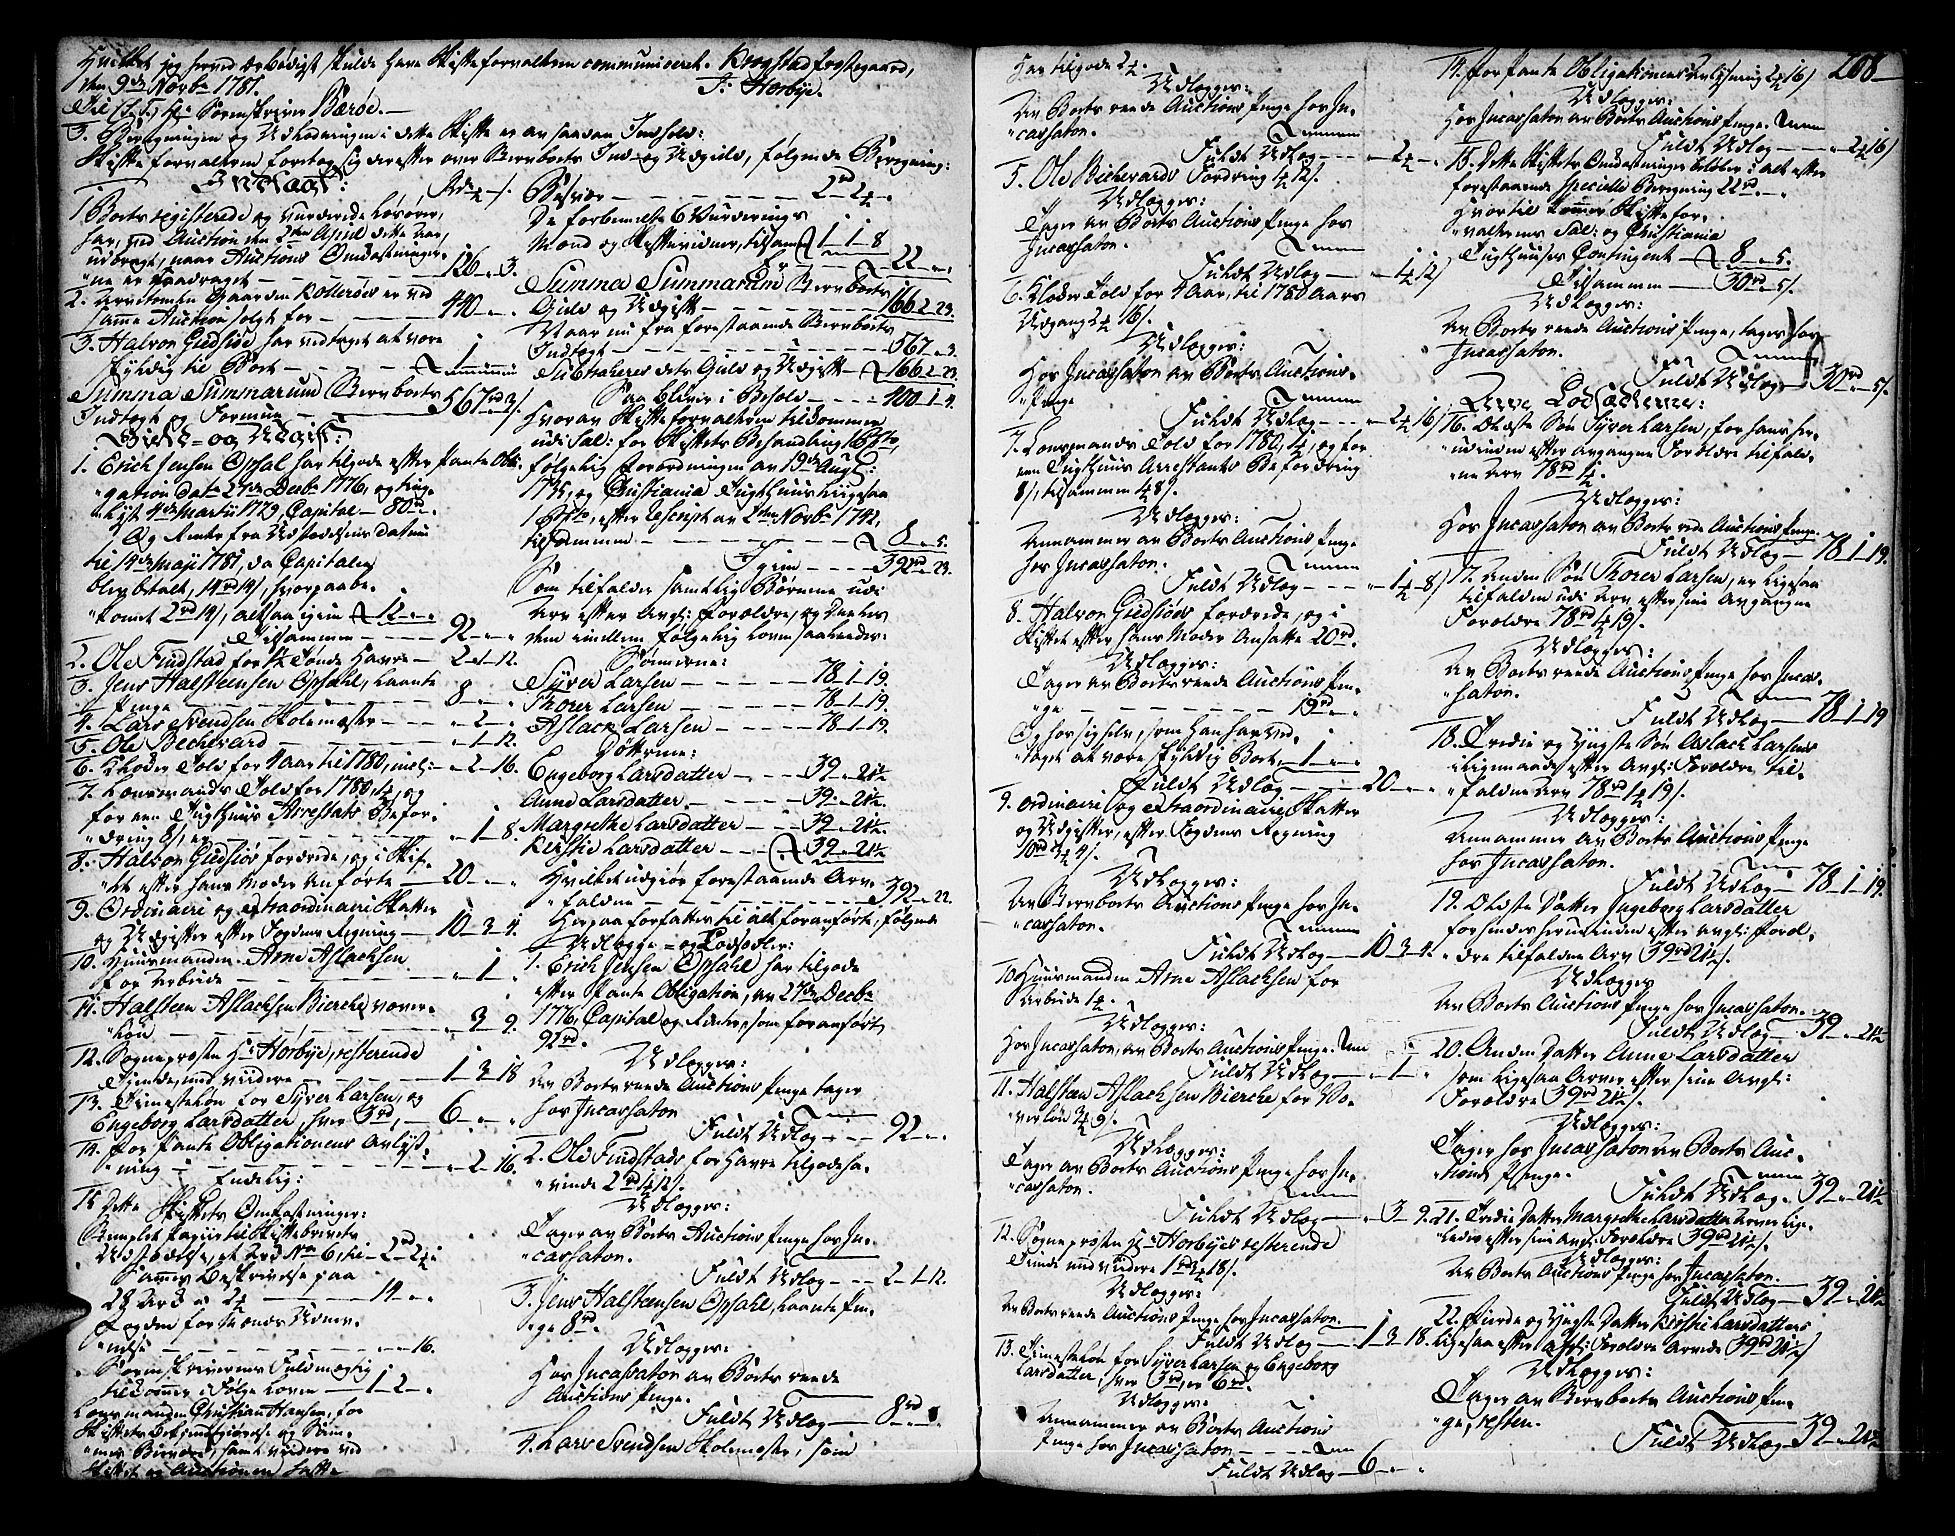 Hvilket jeg herved ærbødigst skulde have Skifteforvalteren communiceret. Krogstad Præstegaard,
den 9de Novbr 1781. J: Horbye.
Til (S.T.) Hr Sorenskriver Bærøe.
3. Beregningen og Udlodningen i dette Skifte er av saadan Indhold:
Skifteforvalteren foretog sig derefter over Sterboets Ind og Udgield, følgende Beregning:
Indtægt:
1. Boets registerede og vurderede Løsøre,
har, ved Auction den 2den April dette Aar,
udbragt, naar Auctions Omkostninger-
ne er fradraget 126 " 3.
2. 
samme Auction solgt for 440
3. Halvor Giedsiøe har vedtaget at være
skyldig til Boet 1
Summa Summarum Sterboets
Indtægt og Formue 567rd 3/
Gield- og Udgift:
1. Erich Jensen Opsal har tilgode efter Pante Obli-
gation dat: 27de Decbr 1776, og ting-
lyst 4de Martii 1779, Capital 80rd
Og Renter fra Udstædelsens datum
til 14de Maji 1781, da Capitalen
blev betalt, 14rd 14/, hvorpaa be-
komet 2rd 14/, altsaa igien 12
Tilsammen 92
2. Ole Findstad for 1 1/2 Tønde Havre 2-1-12.
3. Jens Halsteensen Opsahl, laante
Penge 8
4. Lars Svendsen Skolemester 2
5. Ole Becherard 1-12.
6. Klokker Told for 4 Aar til 1780, incl: 2-16.
7. Lensmands Told for 1780, og
for een Tugthuus Arrestants Befor-
dring 8/, er 1-8.
8. Halvor Giedsiøe fordrede, og i Skif-
tet efter hans Moder anførte 20
9. Ordinaire og extraordinaire Skatter
og Udgifter efter Fogdens Regning 10-3-4.
10. Huusmanden Arne Aslachsen
for Arbeide 1
11. Halsteen Aslachsen Bierche væver-
løn 3-9.
12. Sogneprosten Hr Horbye, resterende
Tiende, med videre 1-3-18
13. Tienesteløn for Syver Larsen, og
Engeborg Larsdatter, hver 3rd, 6
14. For Pante Obligationens Avlys-
ning 2-16.
Endelig:
15. Dette Skiftets Omkostninger:
Stemplet Papiir til Skiftebrevets
Udstædelse, et Ark No 6, til 2rd 2
Sammes Beskrivelse paa
28 Ark 14
Fogden for 
16.
Sorenskriverens Fuldmægtig
tilkommer i Følge Loven 1-2
Lensmanden Christian Hansen, for
Skiftets Bekiendtgiørelse og 
Skiftet og Auctionen havte
Besvær 2rd 2
De forbenævnte 6 Vurderings
Mænd og Skiftevidner, tilsammen 1-1-8
22
Summa Summarum Sterboets
Gield og Udgift 166-2-23.
Naar nu fra forestaaende Sterboets
Indtægt 567-3.
Subtraheres dets Gield og Udgift 166-2-23.
Saa bliver i Behold 400-1-4.
Hvorav Skifteforvalteren tilkommer
udi Sal: for Skiftets Behandling
følgelig Forordningen av 19de Augt:
1735, og Christiania Tugthuus ligesaa
efter Rescript av 2den Novbr 1742,
tilsammen 8-5.
Igien 392rd-23.
Som tilfalder samtlig Børnene udi
Arv efter Avgl: Forældre, og deeles
dem imellem følgelig Loven saaledes:
Sønnerne:
Syver Larsen 78-1-19.
Thorer Larsen 78-1-19.
Aslack Larsen 78-1-19.
Døttrene:
Engeborg Larsdatter 39-21 1/2
Anne Larsdatter 39-21 1/2
Margrethe Larsdatter 39-21 1/2
Kirstie Larsdatter 39-21 1/2
Hvilket udgiør forestaaende Arve-
faldne 392-22.
Herpaa forfattes til alt foranførte, følgende
Udlægge- og Lodsedler:
1. Erich Jensen Opsahl har tilgode
efter Pante Obligation, av 27de Decbr
1776, Capital og Renter, som foranført
92rd.
Udlægges:
Av Boets reede Auctions Penge tager
hos Incassator
Fuldt Udlæg 92
2. Ole Findstads for Havre tilgodeha-
vende 2rd 1 12/
Udlægges:
Tager av Boets Auctions Penge hos In-
cassator.
Fuldt Udlæg 2-1-12.
3. Jens Halsteensen Opsahl, laante Pen-
ge 8rd.
Udlægges:
Hos Incassator av Boets reede
Auctions Penge.
Fuldt Udlæg 8rd
4. Lars Svendsen Skolemester, som
har tilgode 2
Udlægges:
Av Boets reede Auctions Penge hos In-
cassator.
Fuldt Udlæg 2
5. Ole Becherards Fordring 1 12/.
Udlægges:
Tager av Boets Auctions Penge hos
Incassator.
Fuldt Udlæg 1 12/
6. Klokker Told for 4 Aar, til 1780 Aars
Udgang 2 16/.
Udlægges:
Hos Incassator av Boets Auctions-
Penge
Fuldt Udlæg 2 16/
7. Lensmands Told for 1780, 1, og for
een Tugthuus Arrestants Befordring
8/, tilsammen 1 8/.
Udlægges:
Annammer av Boets Auctions Penge
hos Incassator.
Fuldt Udlæg 1 8/
8. Halvor Giedsiøes fordrede, og i
Skiftet efter hans Moder Ansatte 20rd.
Udlægges:
Tager av Boets reede Auctions Pen-
ge 19rd
Og hos sig selv, som han har ved-
taget at være skyldig Boet 1
Fuldt Udlæg 20
9. Ordinaire og extraordinaire Skatter
og Udgifter, efter Fogdens Regning
10rd 3 4/.
Udlægges:
Av Sterboets Auctions Penge hos In-
cassator.
Fuldt Udlæg 10-3-4.
10. Huusmanden Arne Aslachsen for
Arbeide 1.
Udlægges:
Hos Incassator, av Boets Auctions Penge.
Fuldt Udlæg 1
11. Halsteen Aslachsen Bierche for Væ-
verløn 3 9/.
Udlægges:
Tager av Boets Auctions Penge hos In-
cassator.
Fuldt Udlæg 3-9.
12. Sogneprosten Hr Horbyes resterende
Tiende med videre 1rd 3 18/.
Udlægges:
Av Boets reede Auctions Penge hos Incassator.
Fuldt Udlæg 1-3-18.
13. Tienesteløn for Syver Larsen og Engeborg
Larsdatter, hver 3rd, er 6rd.
Udlægges:
Annammer av Boets Auctions
Penge hos Incassator
Fuldt Udlæg 6
208
14. For Pante Obligationens Avlysning 2 16/
Udlægges:
Hos Incassator av Boets Auctions Penge.
Fuldt Udlæg 2 16/
15. Dette Skiftets Omkostninger beløber i alt efter
forestaaende specielle Beregning 22rd.
Hvortil kommer Skiftefor-
valterens Sal: og Christiania
Tugthuuses Contingent 8-5.
Tilsammen 30rd 5/.
Udlægges:
Av Boets reede Auctions Penge, tages hos
Incassator.
Fuldt Udlæg 30rd 5/.
Arve Lodsedlerne:
16. Ældste Søn Syver Larsen, for hans her-
udinden efter avgangne Forældre tilfald-
ne Arv 78rd 1
Udlægges:
Hos Incassator av Boets rede Auctions Penge.
Fuldt Udlæg 78-1-19.
17. Anden Søn Thorer Larsen, er ligesaa
tilfalden udi Arv efter sine Avgangne
Forældre 78rd 1 19/.
Udlægges:
Av Boets reede Auctions Penge hos Incas-
sator.
Fuldt Udlæg 78-1-19
18. Tredie og Yngste Søn Aslack Larsens
i ligemaade efter Avgl: Forældre til-
faldne Arv 78rd 1 19/.
Udlægges:
Annammer av Boets Auctions Penge
hos Incassator.
Fuldt Udlæg 78-1-19.
19. Ældste Datter Ingeborg Larsdatter
for hendes herudinden efter avgl: Foræl-
dre tilfaldne Arv 39rd 21 1/2/.
Udlægges
Av Boets Auctions Penge hos Incassator.
Fuldt Udlæg 39-21 1/2
20. Anden Datter Anne Larsdatter
som ligesaa Arver efter sine Avgl:
Forældre 39rd 21 1/2/.
Udlægges:
Tager hos Incassator av Boets Auc-
tions Penge.
Fuldt Udlæg 39-21 1/2
21. Tredie Datter Margrethe Larsdatter Arver lige-
ledes efter sine Avgl: Forældre 39rd 21 1/2/.
Udlægges:
Av Boets Auctions Penge hos Incassator.
Fuldt Udlæg 39-21 1/2
22. Fierde og Yngste Datter Kirstie Larsdatters
ligesaa efter Avgl: Forældre Arvede 39rd 21 1/2/
Udlægges:
Tager av Sterboets Auctions Pen-
ge, resten.
Fuldt Udlæg 39-21 1/2